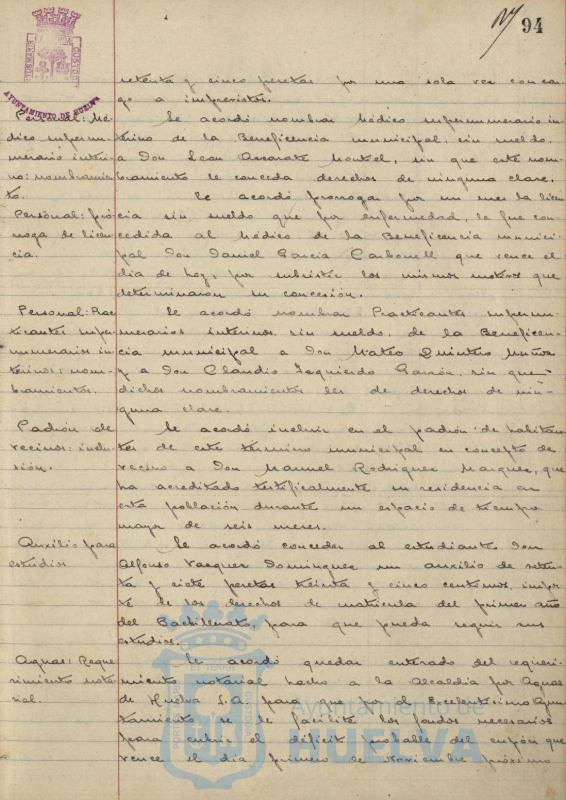 94
AYUNTAMIENTO DE HUELVA
setenta y cinco pesetas por una sola vez con car
go a imprevistos.
Personal: Mé
dico supernu
merario interi
no: nombramien
to.
Se acordó nombrar Médico supernumerario in
terino de la Beneficencia municipal, sin sueldo,
a Don Leon Azcarate Montiel, sin que este nom
bramiento le conceda derechos de ninguna clase.
Personal: pró
rroga de licen
cia.
Se acordó prorrogar por un mes la licen
cia sin sueldo que por enfermedad, le fue con
cedida al Médico de la Beneficencia munici
pal Don Daniel Garcia Carbonell que vence el
dia de hoy, por subsistir los mismos motivos que
determinaron su concesión.
Personal: Prac
ticantes super
numerarios in
terinos: nom
bramientos.
Se acordó nombrar Practicantes supernu
merarios interinos, sin sueldo, de la Beneficen
cia municipal a Don Mateo Quintero Muñoz
y a Don Claudio Izquierdo Garzón, sin que
dichos nombramientos les de derechos de nin
guna clase.
Padrón de
vecinos: inclu
sión.
Se acordó incluir en el padrón de habitan
tes de este término municipal en concepto de
vecino a Don Manuel Rodriguez Marquez, que
ha acreditado testificalmente su residencia en
esta población durante un espacio de tiempo
mayor de seis meses.
Auxilio para
estudios
Se acordó conceder al estudiante Don
Alfonso Vazquez Dominguez un auxilio de seten
ta y siete pesetas treinta y cinco centimos, impor
te de los derechos de matricula del primer año
del Bachillerato, para que pueda seguir sus
estudios.
Aguas: Reque
rimiento nota
rial.
Se acordó quedar enterado del requeri
miento notarial hecho a la Alcaldía por Aguas
de Huelva S.A. para que por el Excelentisimo Ayun
tamiento se le facilite los fondos necesarios
para cubrir el déficit probable del cupón que
vence el dia primero de Noviembre próximo
Ayuntamiento de
HUELVA